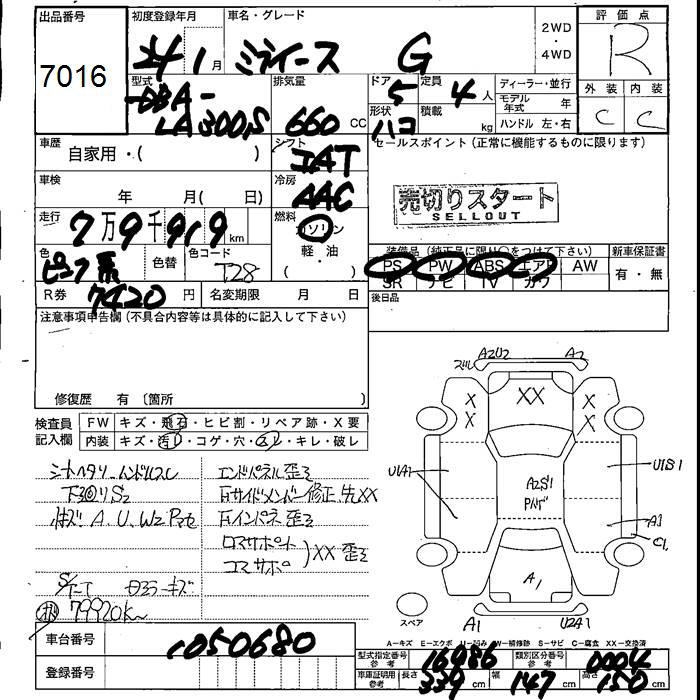 出品番号
7016
初度登録年月
24 1月
車名・グレード
ミライース G
2WD
・
4WD
評価点
R
外装 内装
C C
型式
DBA-
LA300S
排気量
660 CC
ドア
5
形状
ハコ
定員
4人
積載
kg
ディーラー・並行
モデル年式 年
ハンドル 左・右
車歴
自家用・( )
シフト
IAT
セールスポイント(正常に機能するものに限ります)
車検
年 月( 日)
冷房
AAC
売切りスタート
SELLOUT
走行
7万9千919km
燃料
ガソリン
軽・油
( )
色
ピンク系
色替
色コード
T28
装備品(純正品に限り○をつけて下さい)
PS PW ABS エアB AW
SR ナビ TV カワ
新車保証書
有・無
R券
7420円
名変期限 月 日
後日品
注意事項申告欄(不具合内容等は具体的に記入して下さい)
修復歴 有(箇所 )
検査員記入欄
FW キズ・飛石・ヒビ割・リペア跡・X要
内装 キズ・汚レ・コゲ・穴・スレ・キレ・破レ
シートヘタリ ハンドルスレ
下回りS2
キズ A.U.W2
79920km
エンドパネル歪ミ
右サイドメンバー修正、先XX
右インパネ歪ミ
ロアサポート
コアサポ
XX 歪ミ
A2U2 A2
XX
X X
X X
U1A1
A2S1
U1S1
A1
C1
A1
スペア
A1 U2A1
A-キズ E-エクボ U-凹み W-補修跡 S-サビ C-腐食 XX-交換済
車台番号
1050680
登録番号
型式指定番号 参考
16986
類別区分番号 参考
0004
車庫証明用 参考
長さ 339cm 幅 147cm 高さ 150cm